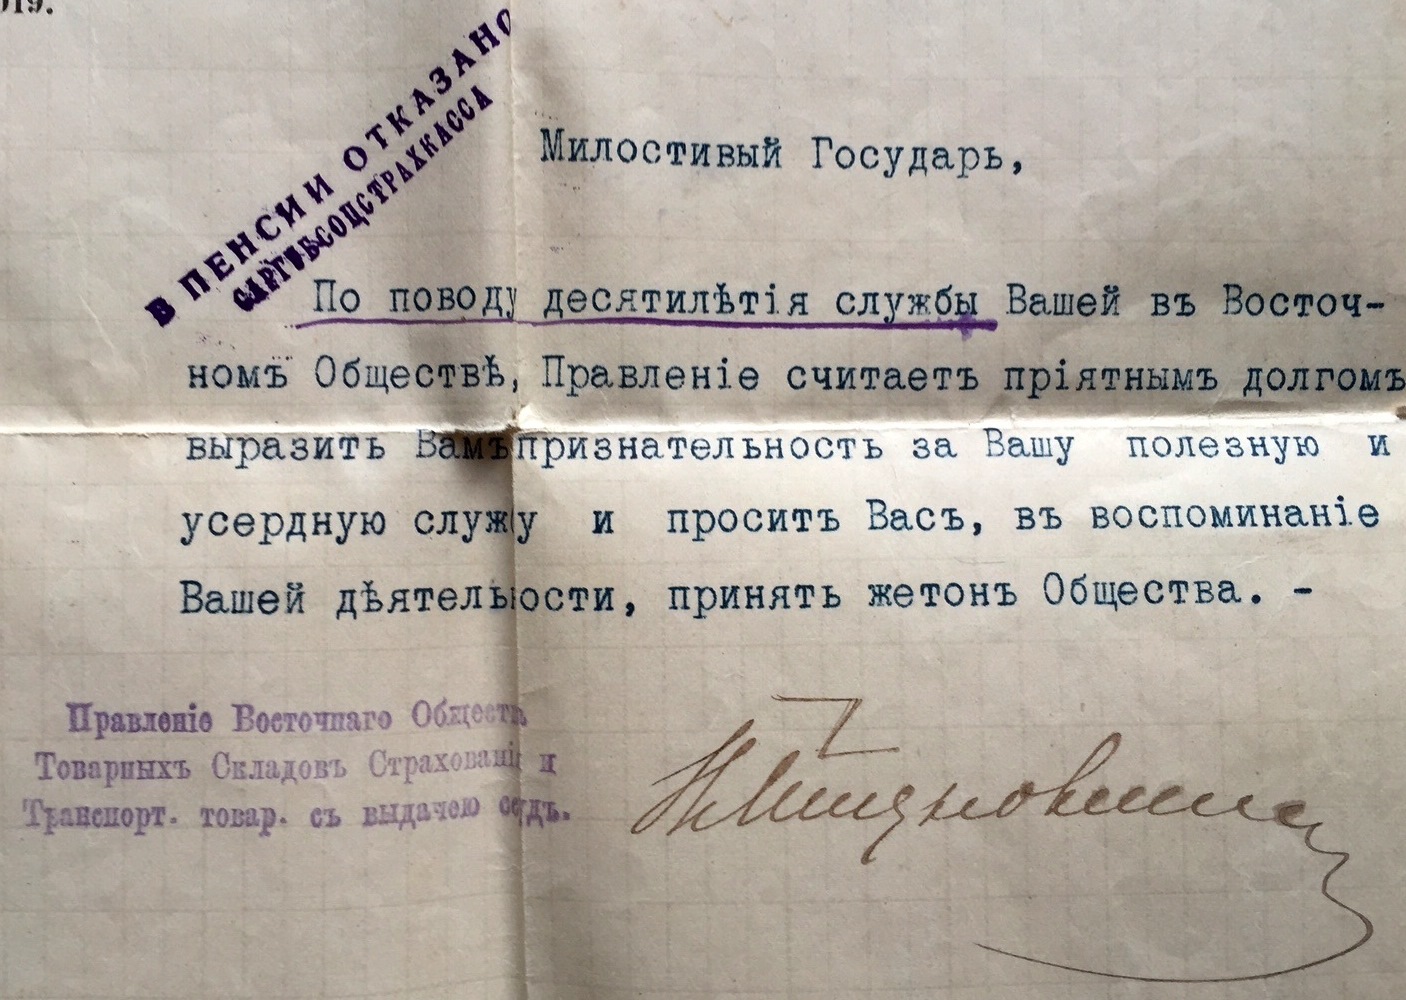 019.
В ПЕНСИИ ОТКАЗАНО
САРГУБСОЦСТРАХКАССА
Милостивый Государь,
По поводу десятилѣтія службы Вашей въ Восточ-
номъ Обществѣ, Правленіе считаетъ пріятнымъ долгомъ
выразить Вамъ признательность за Вашу полезную и
усердную служу и проситъ Васъ, въ воспоминаніе
Вашей дѣятельности, принять жетонъ Общества. -
Правленіе Восточнаго Обществ
Товарныхъ Складовъ Страхованія и
Транспорт. товар. съ выдачею ссудъ.